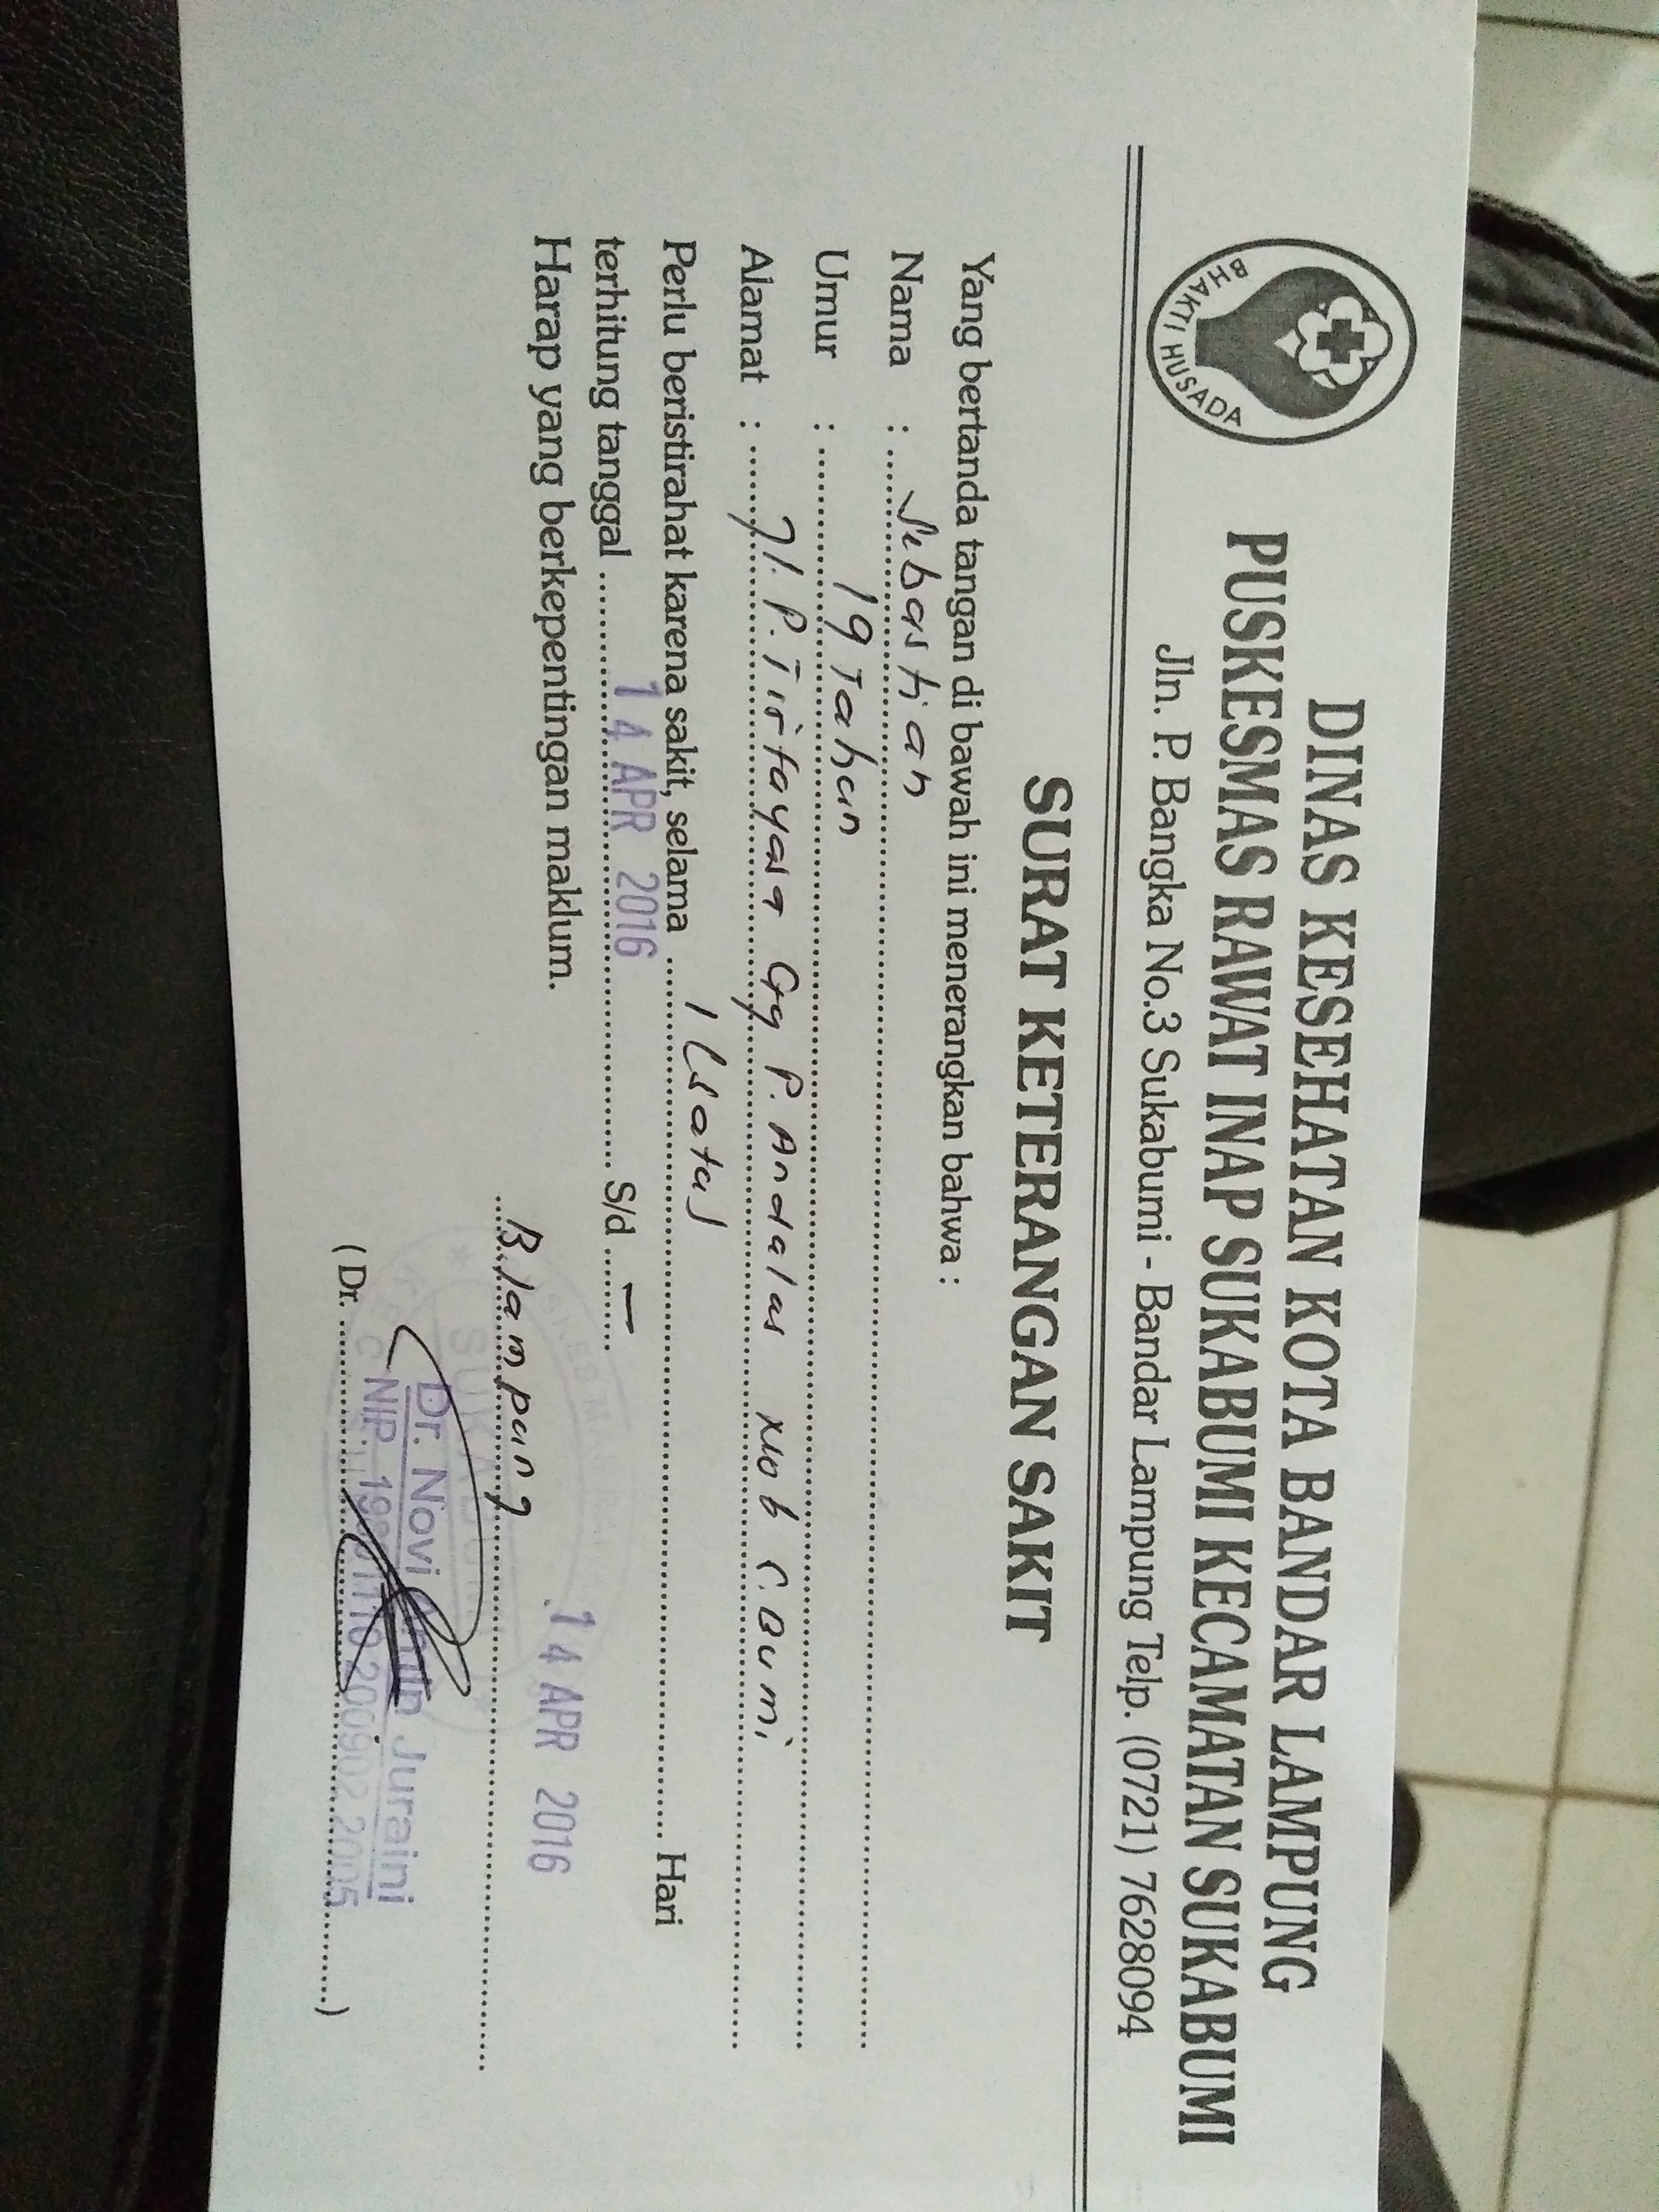 DINAS KESEHATAN KOTA BANDAR LAMPUNG
PUSKESMAS RAWAT INAP SUKABUMI KECAMATAN SUKABUMI
Jln. P. Bangka No.3 Sukabumi - Bandar Lampung Telp. (0721) 7628094
BHAKTI HUSADA
SURAT KETERANGAN SAKIT
Yang bertanda tangan di bawah ini menerangkan bahwa :
Nama : Sebastian
Umur : 19 Tahun
Alamat : Jl. P. Tirtayasa Gg P. Andalas
Perlu beristirahat karena sakit, selama 1 (satu) Hari
terhitung tanggal 14 APR 2016 S/d —
Harap yang berkepentingan maklum.
B. lampung 14 APR 2016
Dr. Novi Juraini
NIP. 200902 2005
( Dr. )